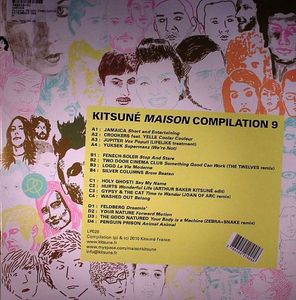 KITSUNÉ MAISON COMPILATION 9
A1 : JAMAICA Short and Entertaining
A2 : CROOKERS feat. YELLE Cooler Couleur
A3 : JUPITER Vox Populi (LIFELIKE treatment)
A4 : YUKSEK Supermenz (We're Not)
B1 : FENECH-SOLER Stop And Stare
B2 : TWO DOOR CINEMA CLUB Something Good Can Work (THE TWELVES remix)
B3 : LOGO La Vie Moderne
B4 : SILVER COLUMNS Brow Beaten
C1 : HOLY GHOST! Say My Name
C2 : HURTS Wonderful Life (ARTHUR BAKER KITSUNÉ edit)
C3 : GYPSY & THE CAT Time to Wander (JOAN OF ARC remix)
C4 : WASHED OUT Belong
D1 : FELDBERG Dreamin'
D2 : YOUR NATURE Forward Motion
D3 : THE GOOD NATURED Your Body is a Machine (ZEBRA & SNAKE remix)
D4 : PENGUIN PRISON Animal Animal
LP028
Compilation (p) & (c) 2010 Kitsuné France
www.kitsune.fr
www.myspace.com/maisonkitsune
info@kitsune.fr